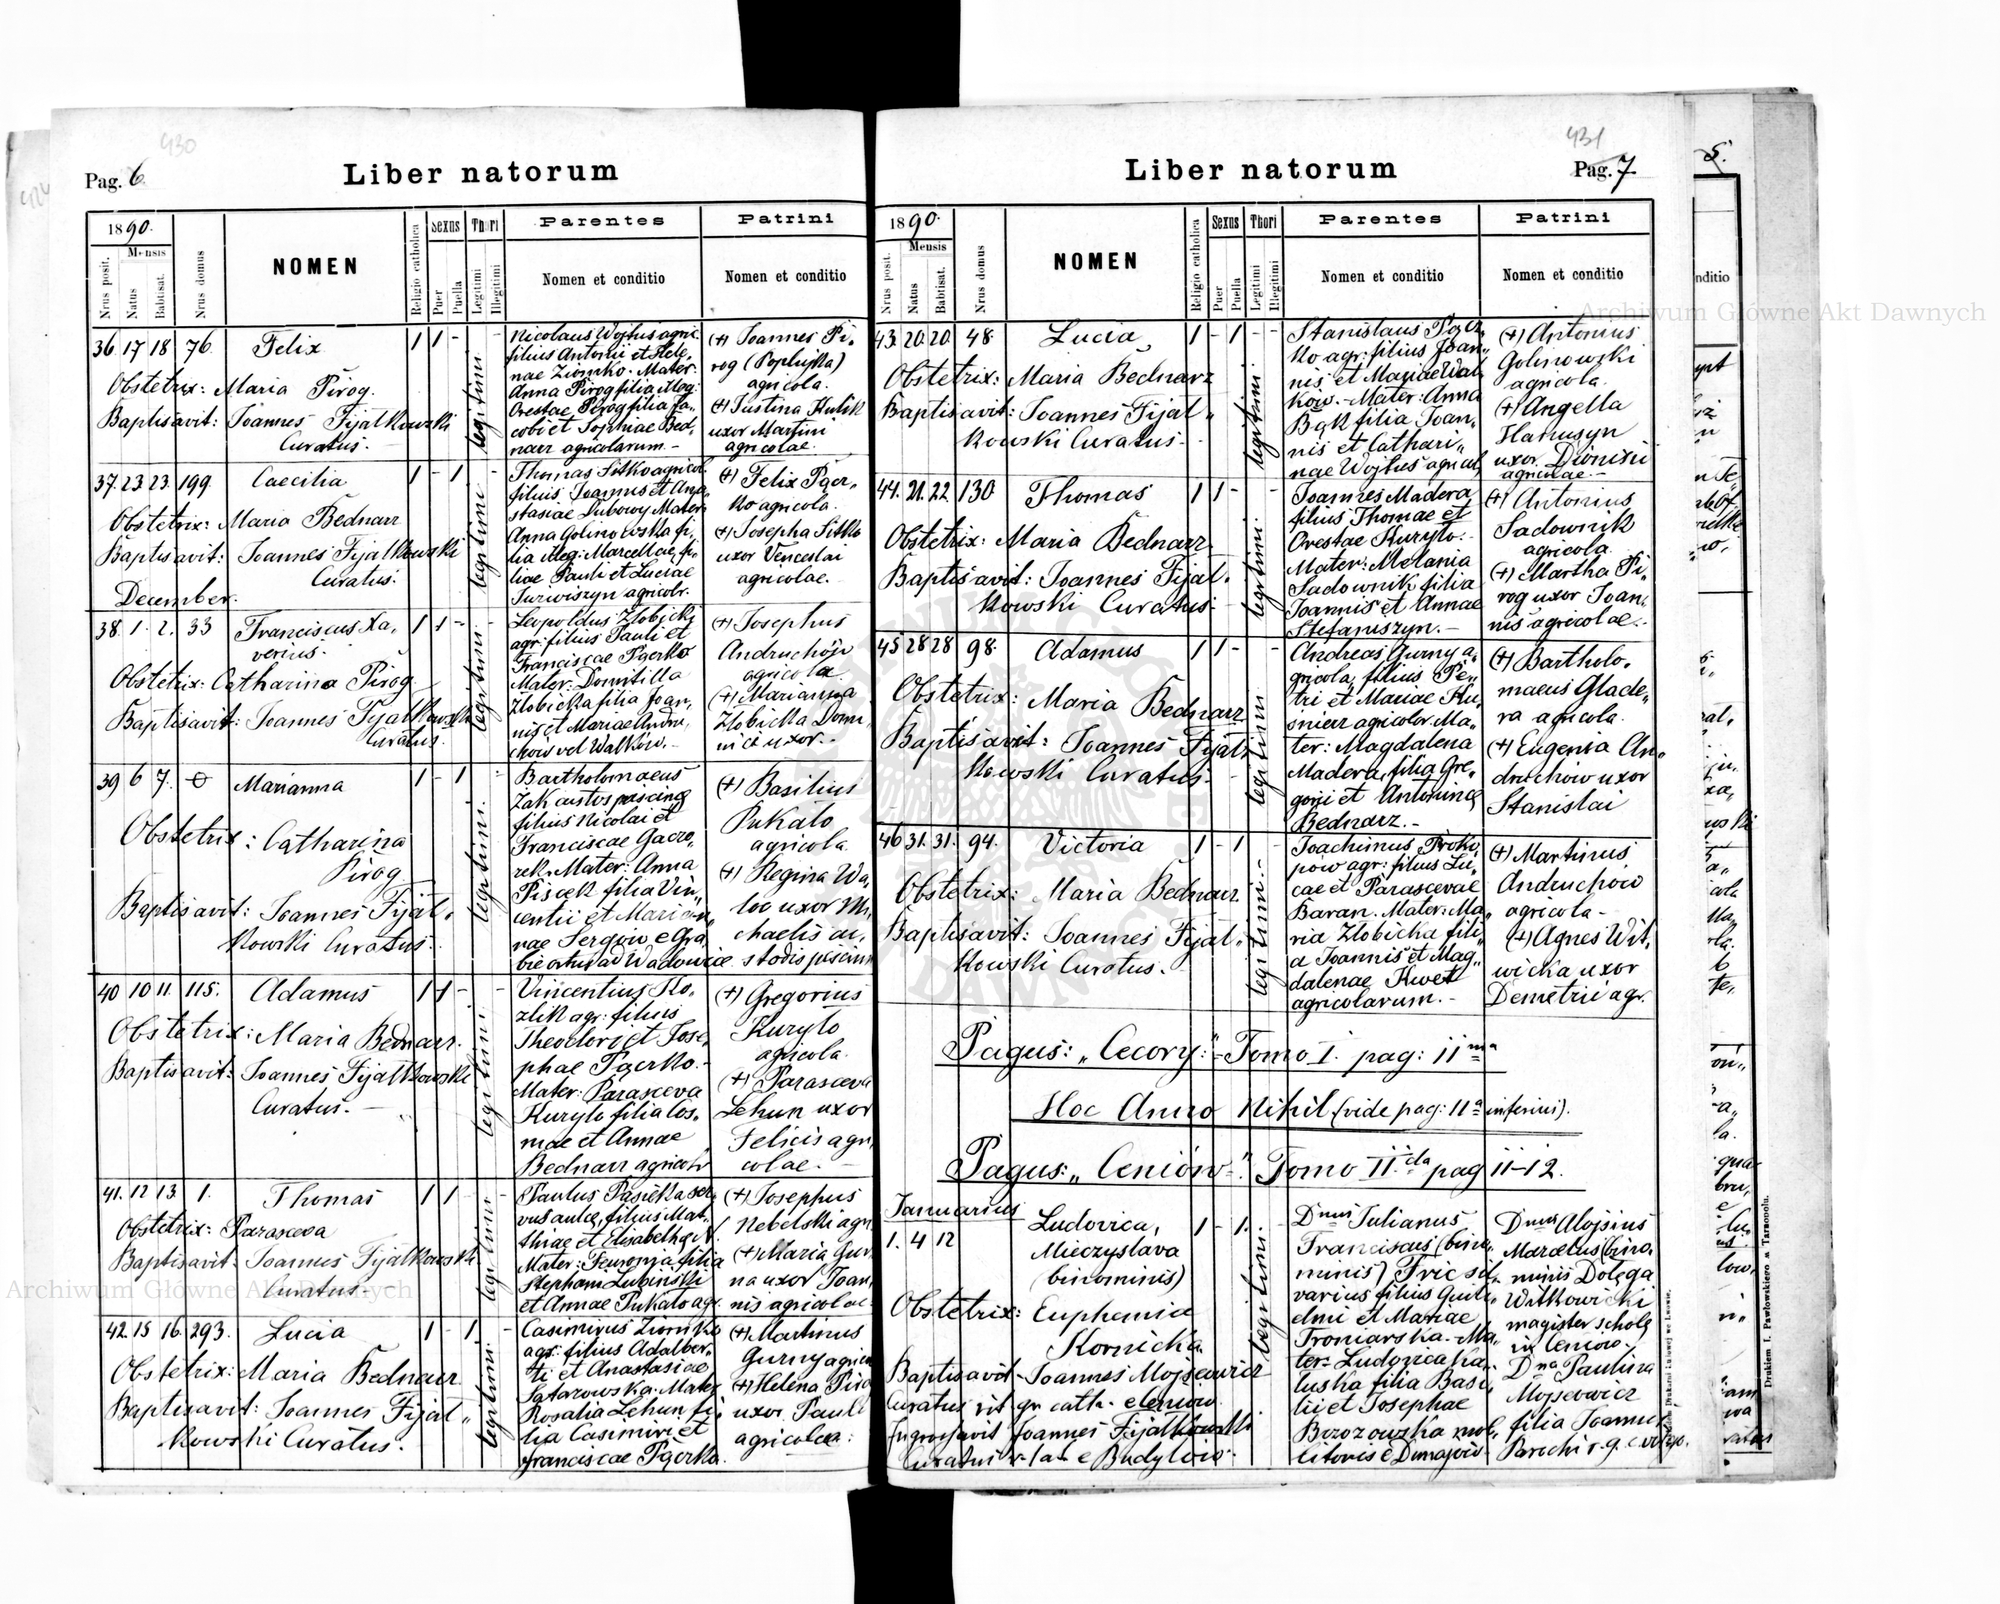 430
Pag. 6
Liber natorum
1890.
Mensis
Nrus posit.
Natus
Babtisat.
Nrus domus
NOMEN
Religio catholica
Sexus
Puer
Puella
Thori
Legitimi
Illegitimi
Parentes
Nomen et conditio
Patrini
Nomen et conditio
36. 17 18 76. Felix 1 1 -
Obstetrix: Maria Pirog.
Baptisavit: Joannes Fijałkowski
Curatus.
legitimi
Nicolaus Wojtus agric.
filius Antonii et Hele„
nae Ziomko. Mater:
Anna Pirog filia
Orestae Pirog filia Ja„
cobi et Sophiae Bed„
narz agricolarum.-
(+) Joannes Pi„
rog
agricola.
(+) Justina Kulik
uxor Martini
agricolae.
37. 23 23. 199. Caecilia 1 - 1
Obstetrix: Maria Bednarz
Baptisavit: Joannes Fijałkowski
Curatus.
December.
legitimi
Thomas Sitko agricol.
filius Joannis et Ana„
stasiae Dubowy Mater:
Anna Golinowska fi„
lia illeg: Marcellae, fi„
liae Pauli et Luciae
agricolr.
(+) Felix Pącz„
ko agricola.
(+) Josepha Sitko
uxor Venceslai
agricolae.
38. 1. 2. 33 Franciscus Xa„ 1 1 -
verius.
Obstetrix: Catharina Pirog
Baptisavit: Joannes Fijałkowski
Curatus.
legitimi
Leopoldus Złobicki
agr: filius Pauli et
Franciscae
Mater: Domitilla
Złobicka filia Joan„
nis et Mariae Andru„
chów vel Walków.-
(+) Josephus
Andruchów
agricola.
(+) Marianna
Złobicka Domi„
nici uxor.-
39 6 7. Marianna 1 - 1
Obstetrix: Catharina
Pirog
Baptisavit: Joannes Fijał„
kowski Curatus.
legitimi.
Bartholomaeus
Żak custos piscinae
filius Nicolai et
Franciscae Gaczo„
rek. Mater: Anna
filia Vin„
centii et Marian„
nae
ortus ad Wadowice
(+) Basilius
Pukało
agricola.
(+) Regina Wa„
uxor Mi„
chaelis cu„
stodis piscinae
40 10 11. 115. Adamus 1 1 -
Obstetrix: Maria Bednarz.
Baptisavit: Joannes Fijałkowski
Curatus.-
legitimi
Vincentius Ko„
zlik agr: filius
Theodori et Jose„
phae
Mater: Parasceva
Kuryło filia Cos„
mae et Annae
Bednarz agricolr
(+) Gregorius
Kuryło
agricola.
(+) Parasceva
Lehun uxor
Felicis agri„
colae.-
41. 12 13. 1. Thomas 1 1 -
Obstetrix: Parasceva
Baptisavit: Joannes Fijałkowski
Curatus.-
legitimi
Paulus Pasieka ser„
vus aulae, filius Mat„
thiae et Elisabethae N.
Mater: filia
Stephani Łubinski
et Annae Pukało agr.
(+) Josephus
Nebelski agr.
(+) Maria Gur„
na uxor Joan„
nis agricolae.
42. 15 16. 293. Lucia 1 - 1.
Obstetrix: Maria Bednarz
Baptisavit: Joannes Fijał„
kowski Curatus.
legitimi.
Casimirus Ziomko
agr: filius Adalber„
ti et Anastasiae
Mater
Rosalia Lehun fi„
lia Casimiri et
Franciscae
(+) Martinus
Gurny agrico
(+) Helena Piro
uxor Pauli
agricolae.
431
Pag. 7
Liber natorum
1890.
Mensis
Nrus posit.
Natus
Babtisat.
Nrus domus
NOMEN
Religio catholica
Sexus
Puer
Puella
Thori
Legitimi
Illegitimi
Parentes
Nomen et conditio
Patrini
Nomen et conditio
43. 20. 20. 48. Lucia 1 - 1 -
Obstetrix: Maria Bednarz
Baptisavit: Joannes Fijał„
kowski Curatus.
legitimi.
Stanislaus Pącz„
ko agr: filius Joan„
nis et Mariae Wal„
ków.- Mater: Anna
Bąk filia Joan„
nis et Cathari„
nae Wojtus agricol,
(+) Antonius
Golinowski
agricola.
(+) Angella
Hanusyn
uxor Dionisii
agricolae.-
44. 21. 22. 130 Thomas 1 1 -
Obstetrix: Maria Bednarz
Baptisavit: Joannes Fijał„
kowski Curatus.
legitimi.
Joannes Madera
filius Thomae et
Orestae Kuryło.-
Mater: Melania
Sadownik filia
Joannis et Annae
Stefaniszyn.-
(+) Antonius
Sadownik
agricola.
(+) Martha Pi„
rog uxor Joan„
nis agricolae.-
45 28 28 98. Adamus 1 1 -
Obstetrix: Maria Bednarz
Baptisavit: Joannes Fijał„
kowski Curatus.
legitimi
Andreas Gurny a„
gricola, filius Pe„
tri et Mariae Ku„
snierz agricolr. Ma„
ter: Magdalena
Madera, filia Gre„
gorii et Antoninae
Bednarz.-
(+) Bartholo„
maeus Glade„
ra agricola.
(+) Eugenia An„
druchów uxor
Stanislai
46 31. 31. 94. Victoria 1 - 1 -
Obstetrix: Maria Bednarz
Baptisavit: Joannes Fijał„
kowski Curatus.
legitimi.-
Joachimus Proko„
pów agr: filius Lu„
cae et Parascevae
Baran. Mater: Ma„
ria Złobicka fili„
a Joannis et Mag„
dalenae Kwet
agricolarum.-
(+) Martinus
Andruchów
agricola.-
(+) Agnes Wit„
wicka uxor
Demetrii agr.
Pagus: „Cecory:"- Tomo I. pag: 11ma
Hoc Anno Nihil (vide pag: 11a inferius).
Pagus: „Ceniów-" Tomo IIda pag 11-12.
Januarius
1. 4 12 Ludovica, 1 - 1.
Mieczysłava
(binominis)
Obstetrix: Euphemia
Kornicka
Baptisavit- Joannes Mojsewicz
Curatus rit. gr. cath. e Ceniów.
Ingrossavit Joannes Fijałkowski
Curatus r. lat. e Budyłów.
legitimi
Dnus Julianus
Franciscus (bino„
minis) Fric sil„
varius filius Guili„
elmi et Mariae
Troniarska. Ma„
ter: Ludovica Ka„
luska filia Basi„
lii et Josephae
Brzozowska mol„
litoris e Dunajów.
Dnus Aloysius
Marcelus (bino„
minis Dołęga
Witkowicki
magister scholae
in Ceniów.-
Dna Paulina
Mojsewicz
filia Joannis
Parochi r. g. c.
Drukiem I. Pawłowskiego w Tarnopolu.
nditio
5.
Archiwum Główne Akt Dawnych
Archiwum Główne Akt Dawnych